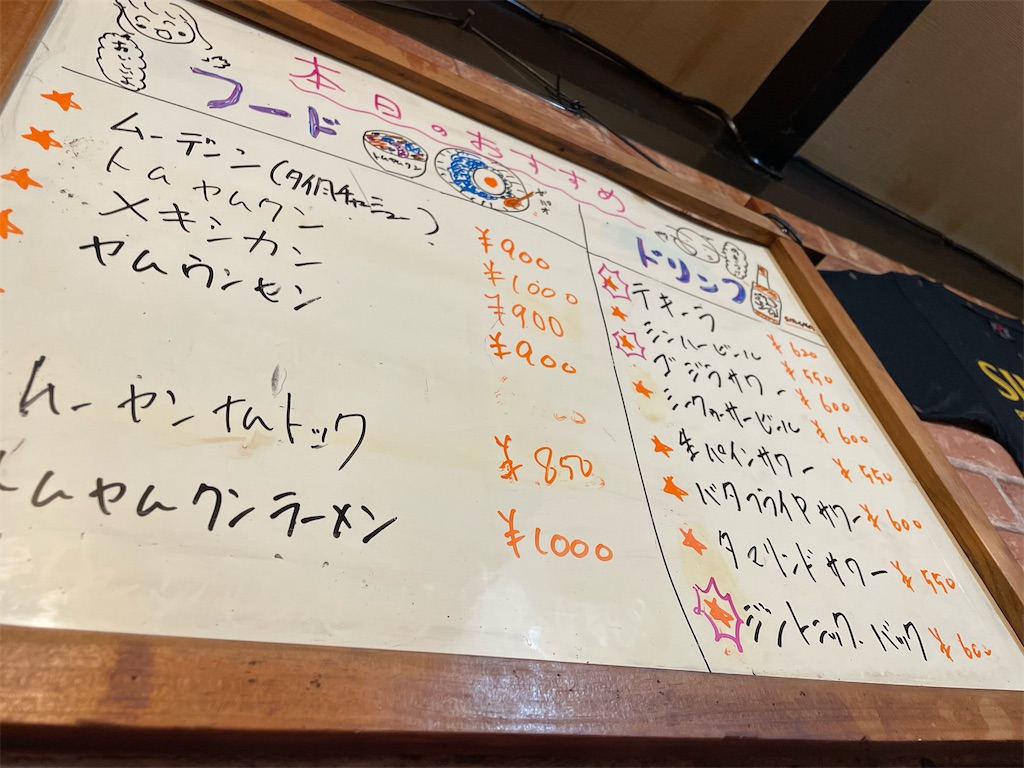 本日のおすすめ
フード
トムヤムクン
ムーデンン(タイ風チャーシュー) ¥900
トムヤムクン ¥1000
メキシカン ¥900
ヤムウンセン ¥900
ムーヤンナムトック ¥850
トムヤムクンラーメン ¥1000
ドリンク
テキーラ ¥620
シンハービール ¥550
ゴジラサワー ¥600
シークヮーサービール ¥600
生パインサワー ¥550
バタフライPサワー ¥600
タマリンドサワー ¥550
ジントニック.バック ¥600